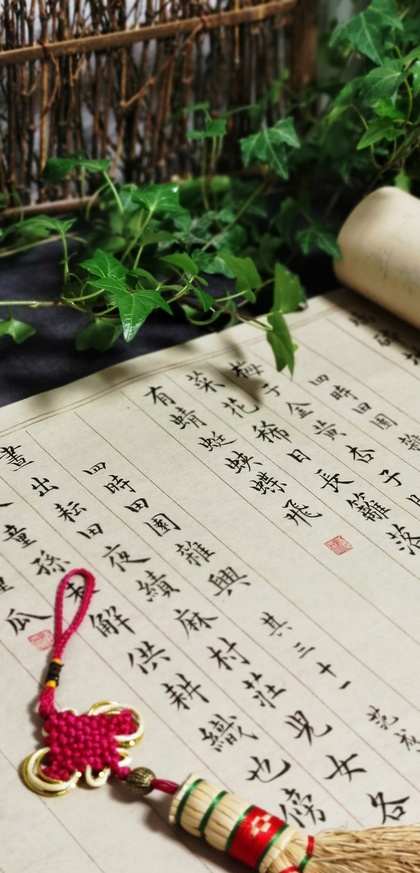 四時田園雜
梅子金黃杏子
菜花稀日長籬落
有蜻蜓蛺蝶飛
四時田園雜興 其三十一 范成
晝出耘田夜績麻村莊兒女各
童孫未解供耕織也傍
瓜